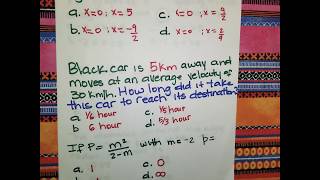 a. x=0; x=5 c. x=0; x=9/2
b. x=0; x=-9/2 d. x=0; x=2/9
Black car is 5km away and
moves at an average velocity of
30 km/h. How long did it take
this car to reach its destination?
a. 1/6 hour c. 1/5 hour
b. 6 hour d. 5/3 hour
If P = m²/2-m with m=-2 p=
a. 1 c. 0
d. ∞